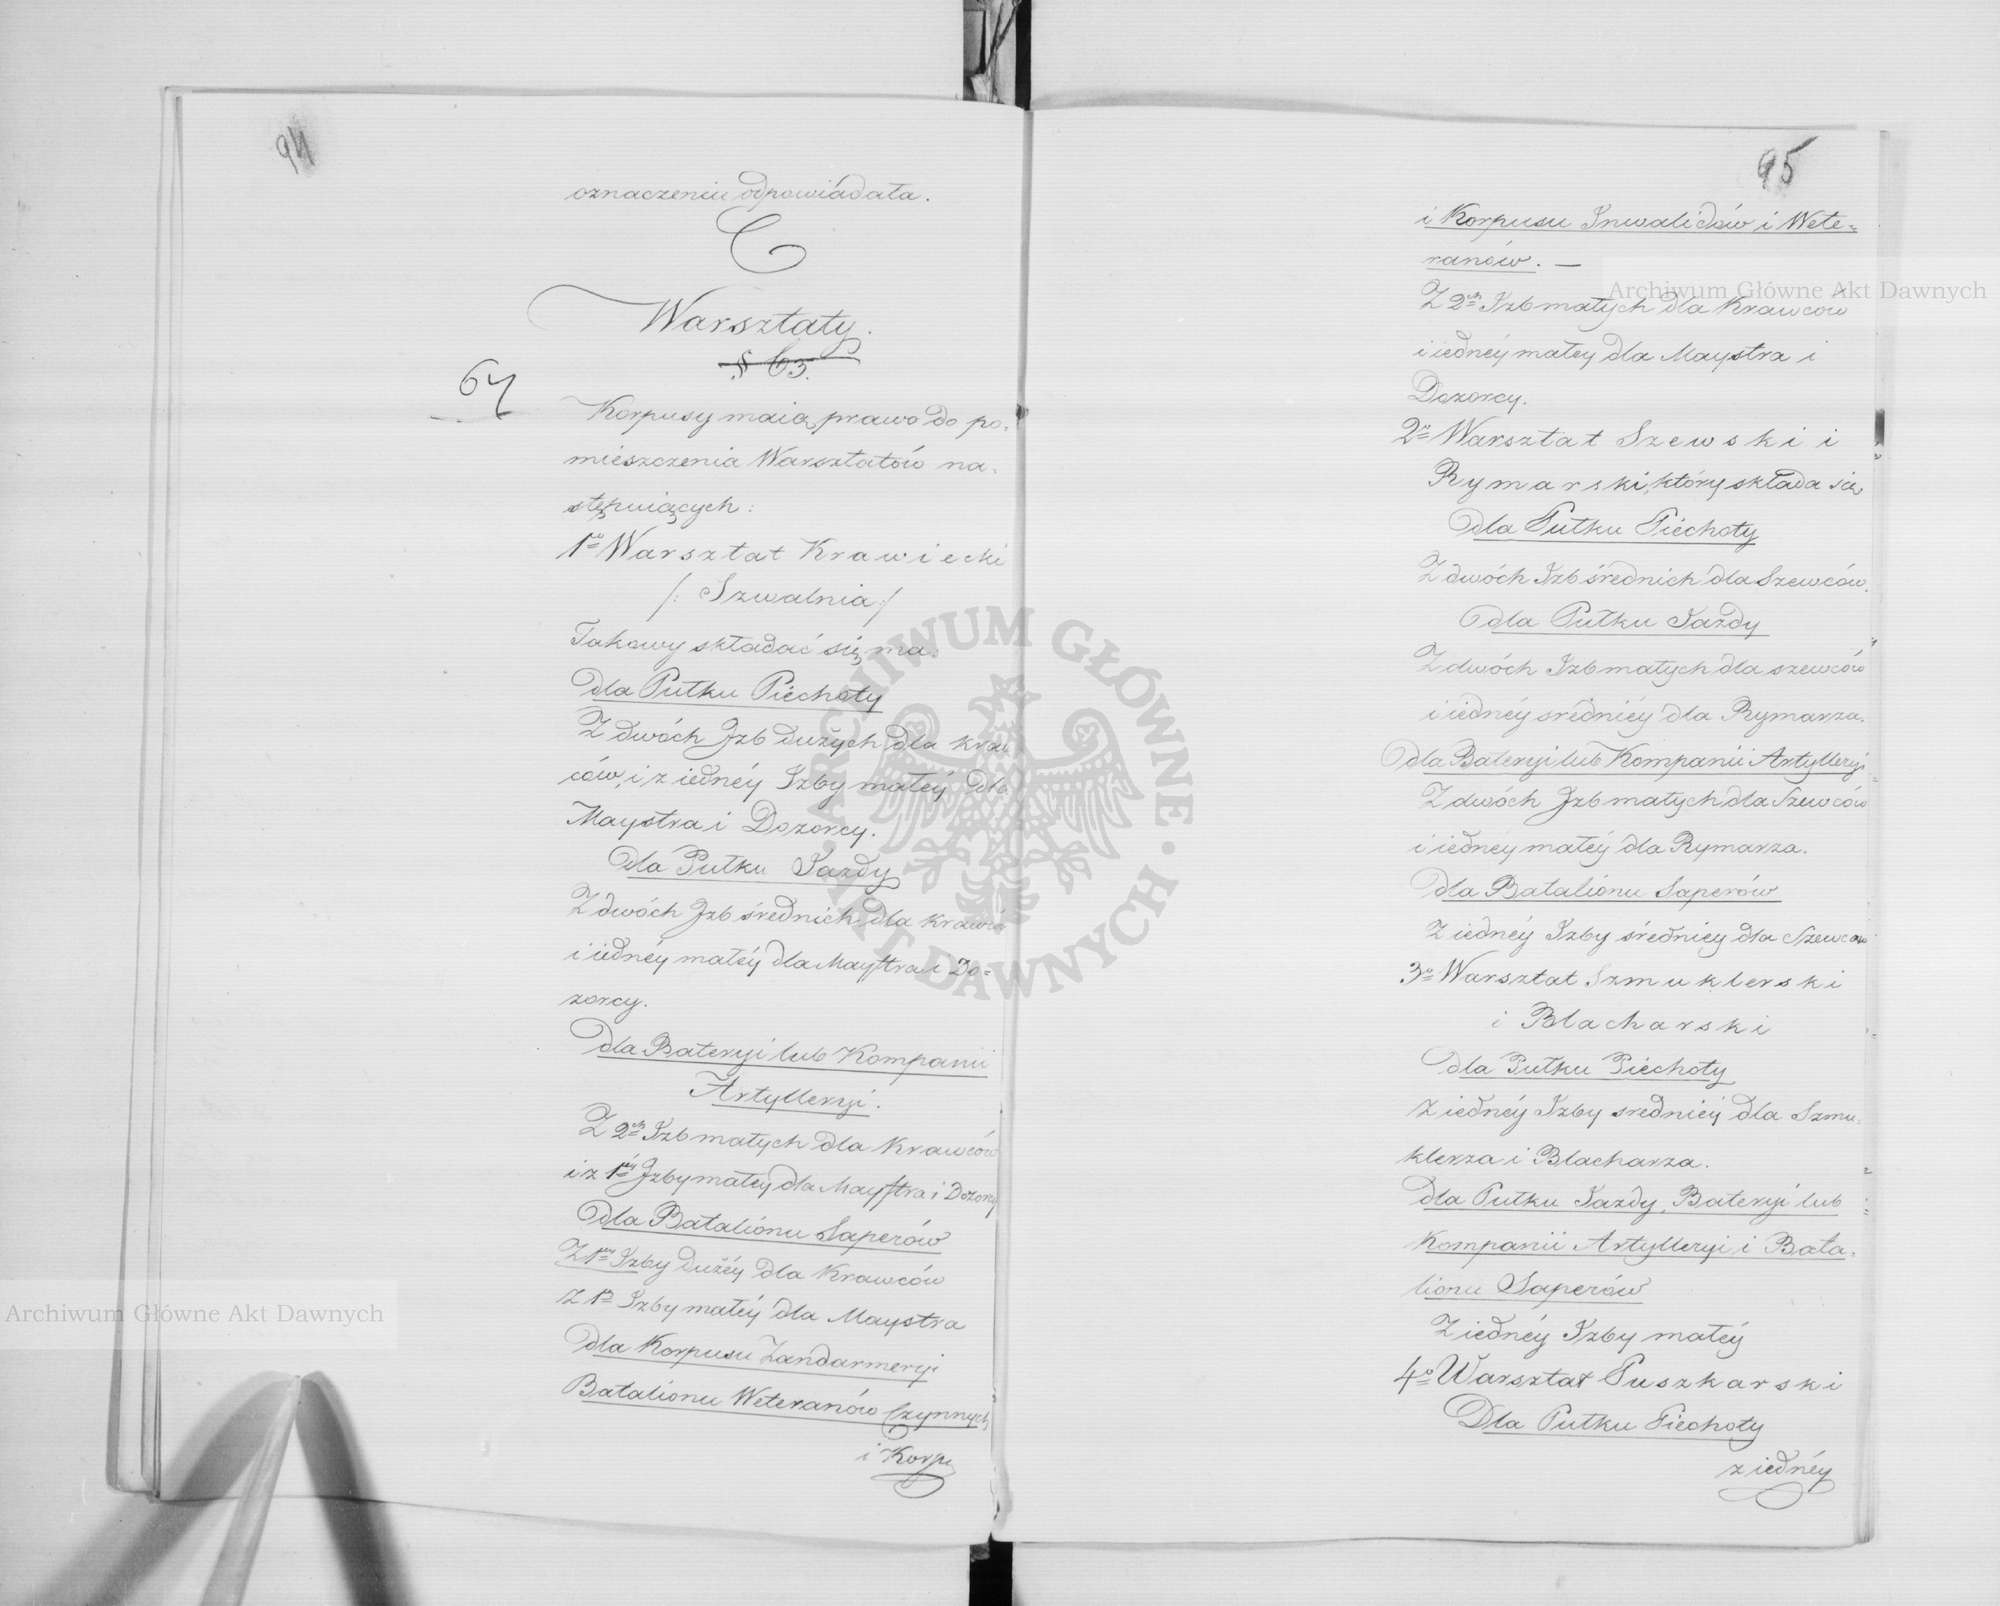 94
oznaczeniu odpowiádała.
C
Warsztaty.
§ 63.
64
Korpusy maią prawo do po=
mieszczenia Warsztatów na=
stępuiących:
1o Warsztat Krawiecki
/: Szwalnia :/
Takowy składać się ma:
dla Pułku Piéchoty
Z dwóch Izb dużych dla kraw
ców, i z iednéy Izby małéy dla
Maystra i Dozorcy.
dla Pułku Jazdy
Z dwóch Izb średnich dla krawców
i iednéy małéy dla Maystra i Do=
zorcy.
dla Bateryi lub Kompanii
Artylleryi.
Z 2ch Izb małych dla Krawców
i z 1éy Izby małéy dla Maystra i Dozorcy
dla Batalionu Saperów
Z 1éy Izby dużéy dla Krawców
Z 1éy Izby małéy dla Maystra
dla Korpusu Żandarmeryi
Batalionu Weteranów Czynnych
i Korpu
95
i Korpusu Inwalidów i Wete=
ranów. —
Z 2ch Izb małych dla Krawców
i iednéy małéy dla Maystra i
Dozorcy.
2o Warsztat Szewski i
Rymarski, który składa się
dla Pułku Piéchoty
Z dwóch Izb średnich dla Szewców.
dla Pułku Jazdy
Z dwóch Izb małych dla szewców
i iednéy średniéy dla Rymarza.
dla Bateryi lub Kompanii Artylleryi
Z dwóch Izb małych dla Szewców
i iednéy małéy dla Rymarza.
dla Batalionu Saperów
Z iednéy Izby średniéy dla Szewców
3o Warsztat Szmuklerski
i Blacharski
dla Pułku Piéchoty
Z iednéy Izby średniéy dla Szmu=
klerza i Blacharza.
dla Pułku Jazdy, Bateryi lub
Kompanii Artylleryi i Bata=
lionu Saperów
Z iednéy Izby małéy
4o Warsztat Puszkarski
Dla Pułku Piechoty
z iednéy
Archiwum Główne Akt Dawnych
Archiwum Główne Akt Dawnych
ARCHIWUM GŁÓWNE · AKT DAWNYCH ·